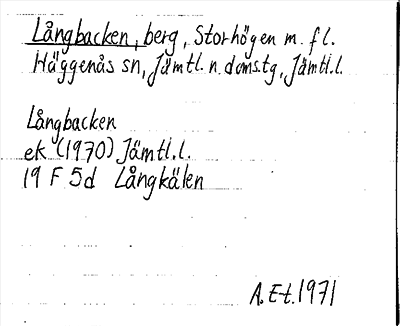 Långbacken, berg, Storhögen m. fl.
Häggenås sn, Jämtl. n. doms.tg, Jämtl.l.
Långbacken
ek (1970) Jämtl.l.
19 F 5d Långkälen
A. E-t. 1971